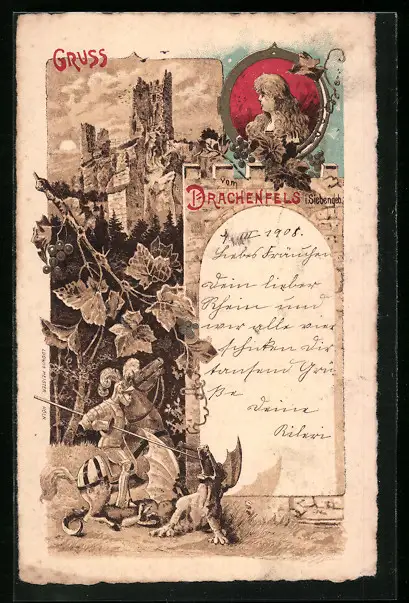 Gruss
vom
Drachenfels i. Siebengeb.
1908.
Liebes Fräuchen
Dein lieber
Rhein und
wir alle vier
schicken Dir
tausend Grü
ße
Deine
KÖLN